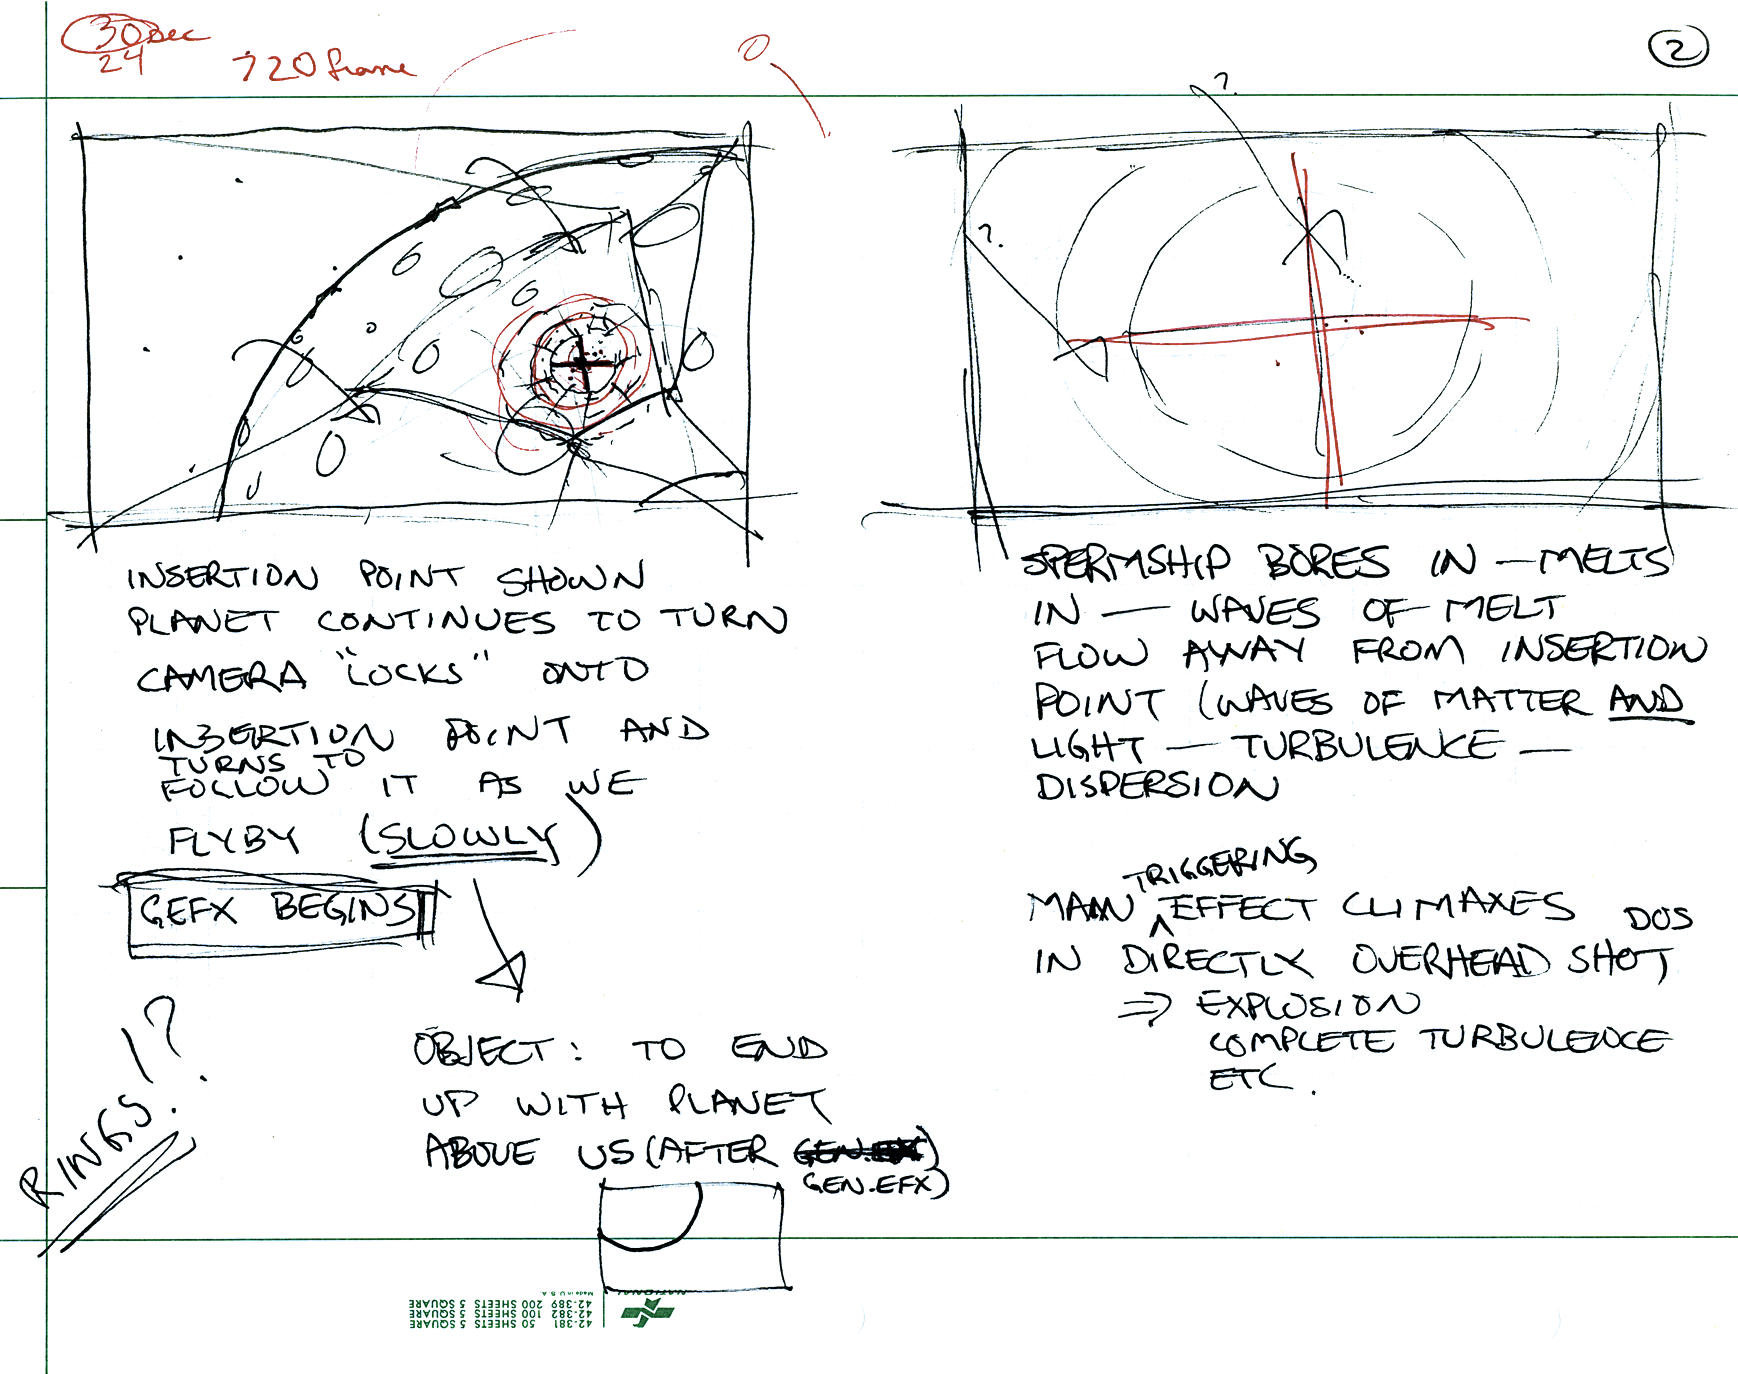 30sec
24
720 frame
2
?.
?.
INSERTION POINT SHOWN
PLANET CONTINUES TO TURN
CAMERA "LOCKS" ONTO
INSERTION POINT AND
TURNS TO
FOLLOW IT AS WE
FLYBY (SLOWLY)
GEFX BEGINS
OBJECT: TO END
UP WITH PLANET
ABOVE US (AFTER GEN.EFX)
GEN.EFX)
RINGS!?
SPERMSHIP BORES IN — MELTS
IN — WAVES OF MELT
FLOW AWAY FROM INSERTION
POINT (WAVES OF MATTER AND
LIGHT — TURBULENCE —
DISPERSION
TRIGGERING
MAIN ^ EFFECT CLIMAXES
IN DIRECTLY OVERHEAD SHOT
DOS
⇒ EXPLOSION
COMPLETE TURBULENCE
ETC.
NATIONAL
Made in U.S.A.
42-381 50 SHEETS 5 SQUARE
42-382 100 SHEETS 5 SQUARE
42-389 200 SHEETS 5 SQUARE